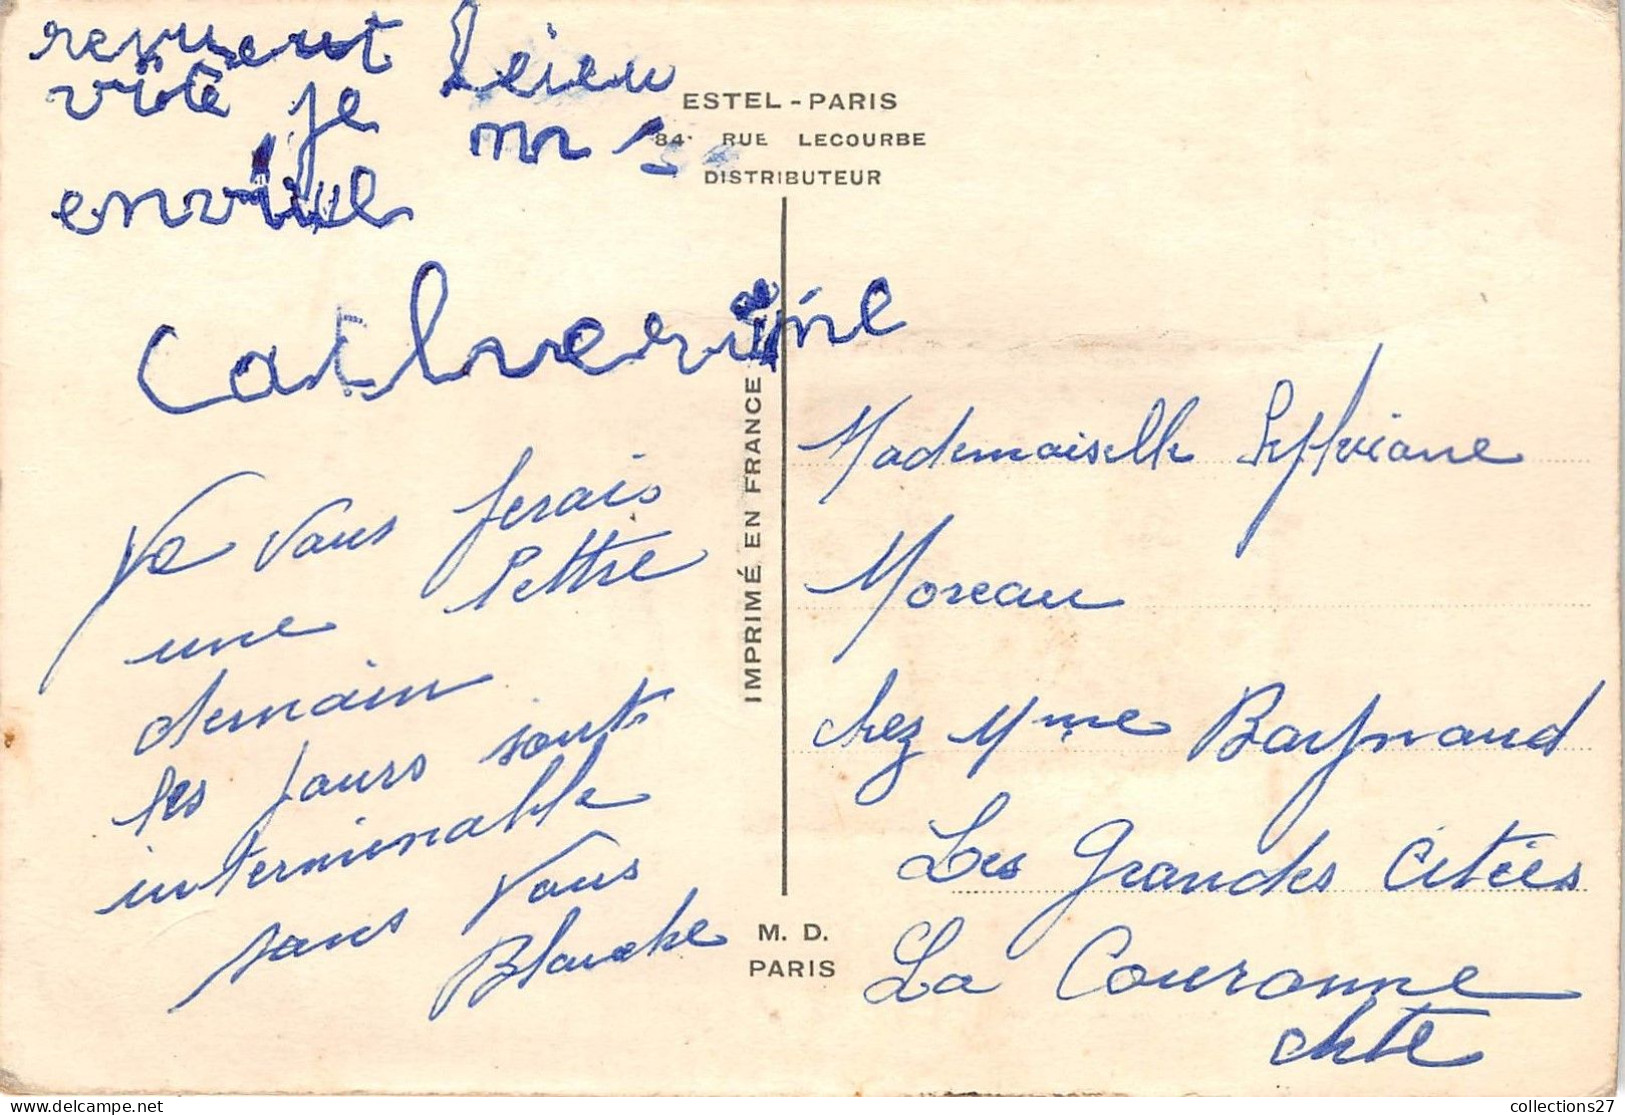 revient
vite je
envoie
Catherine
Je vous ferais
une lettre
demain
les jours sont
interminable
sans vous
Blanche
ESTEL - PARIS
84, RUE LECOURBE
DISTRIBUTEUR
IMPRIMÉ EN FRANCE
M. D.
PARIS
Mademoiselle Sylviane
Moreau
chez Mme Baynaud
Les Grandes Citées
La Couronne
chte
collections27